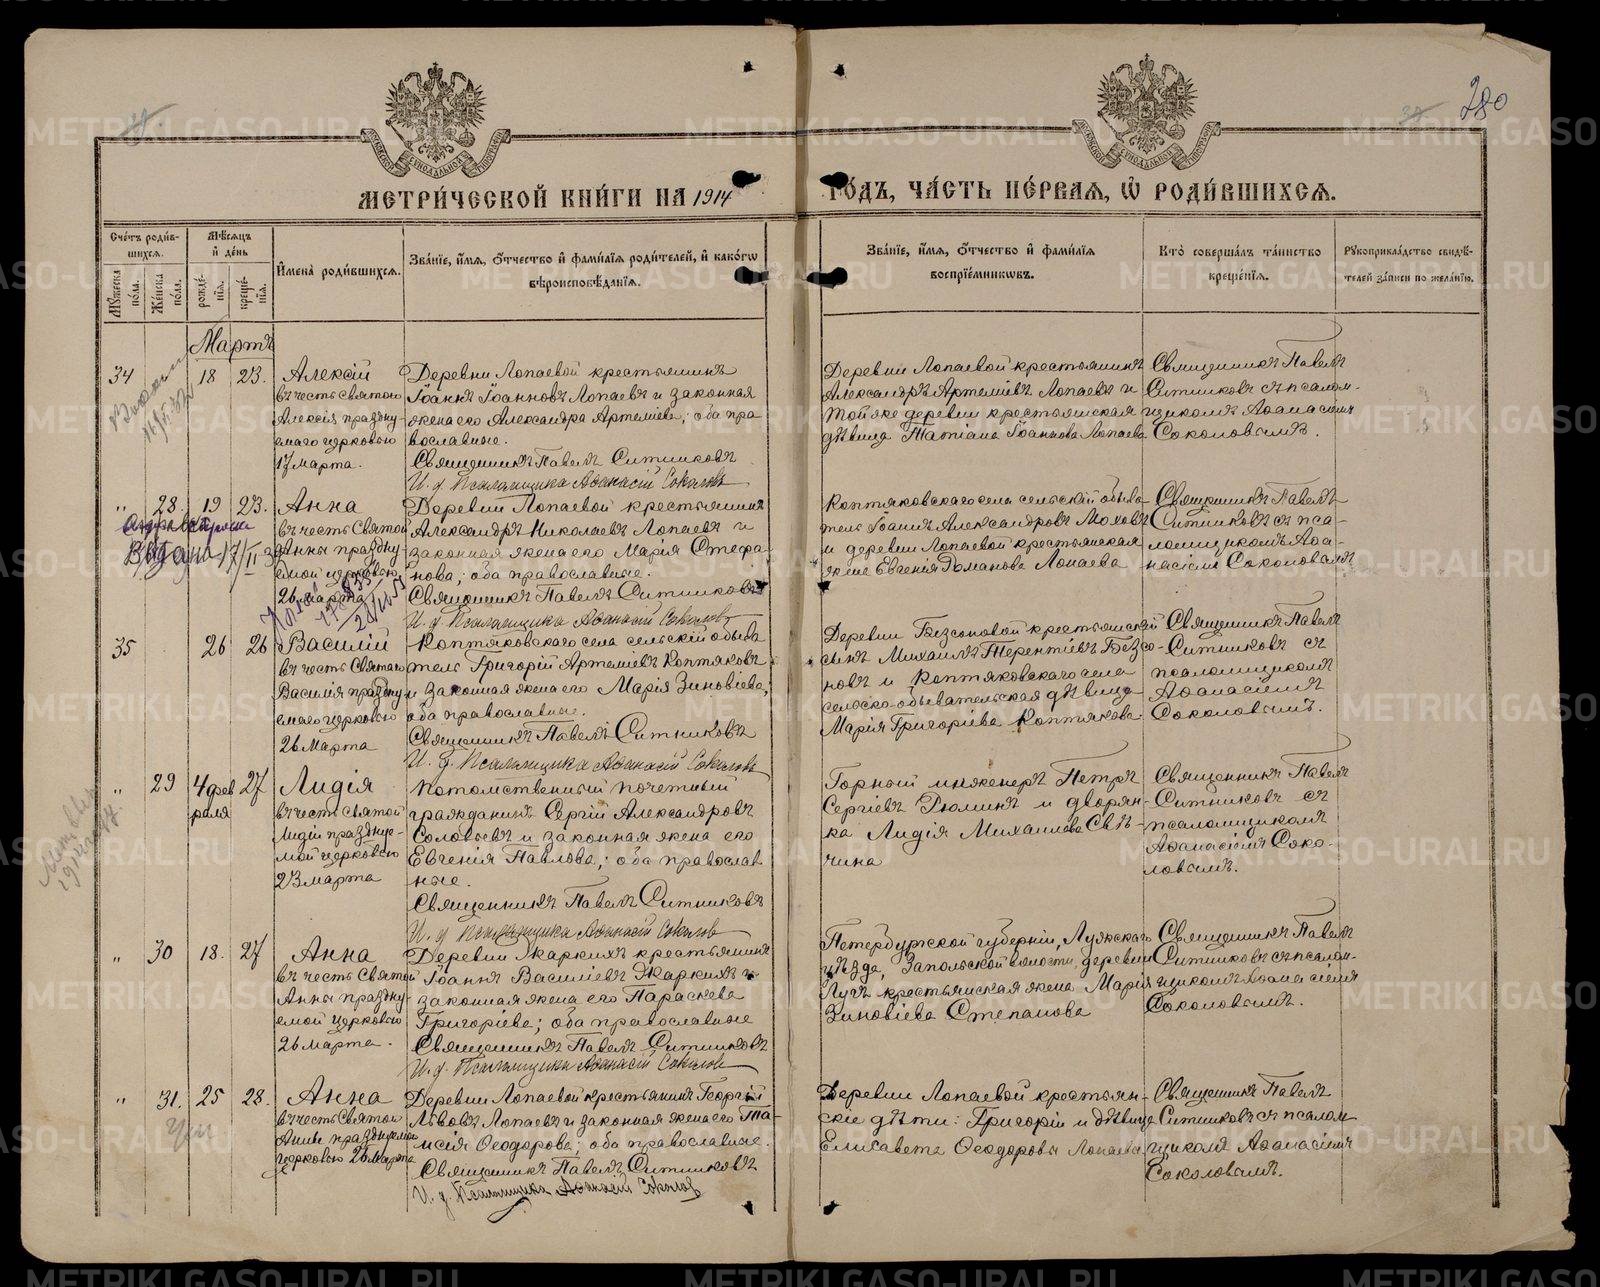 280
МЕТРИ́ЧЕСКОЙ КНИ́ГИ НА 1914 ГО́ДЪ, ЧА́СТЬ ПЕ́РВАЯ, Ѡ РОДИ́ВШИХСЯ.
Сче́тъ роди́вшихся.
Мꙋ́жеска по́ла.
Же́нска по́ла.
Мѣ́сяцъ и҆ де́нь
рожде́нїѧ.
креще́нїѧ.
И҆мена̀ роди́вшихсѧ.
Зва́нїе, и҆́мѧ, ѻ҆́тчество и҆ фами́лїѧ роди́телей, и҆ како́гѡ вѣроисповѣ́данїѧ.
Зва́нїе, и҆́мѧ, ѻ҆́тчество и҆ фами́лїѧ воспрїе́мникѡвъ.
Кто̀ соверша́лъ та́инство креще́нїѧ.
Рꙋкоприкла́дство свидѣ́телей за́писи по жела́нїю.
Мартъ
34
18
23.
Алексій
въ честь святого
Алексія праздну-
емаго церковью
17 марта.
Деревни Лопаевой крестьянинъ
Іоаннъ Іоанновъ Лопаевъ и законная
жена его Александра Артеміева; оба пра
вославные.
Священникъ Павелъ Ситниковъ
И. д. Псаломщика Аѳанасій Соколовъ
Деревни Лопаевой крестьянинъ
Александръ Артеміевъ Лопаевъ и
той же деревни крестьянская
дѣвица Татіана Іоаннова Лопаева
Священникъ Павелъ
Ситниковъ съ псалом-
щикомъ Аѳанасіемъ
Соколовымъ.
"
28
19
23.
Анна
въ честь Святой
Анны праздну-
емой церковью
26 марта
Деревни Лопаевой крестьянинъ
Александръ Николаевъ Лопаевъ и
законная жена его Марія Стефа-
нова; оба православные.
Священникъ Павелъ Ситниковъ
И. д. Псаломщика Аѳанасій Соколовъ
Коптяковскаго села сельскій обыва-
тель Іоаннъ Александровъ Моховъ
и деревни Лопаевой крестьянская
жена Евгенія Романова Лопаева
Священникъ Павелъ
Ситниковъ съ пса-
ломщикомъ Аѳа-
насіемъ Соколовымъ
35
26
26
Василій
въ честь Святаго
Василія праздну
емаго церковью
26 Марта
Коптяковскаго села сельскій обыва
тель Григорій Артеміевъ Коптяковъ
и законная жена его Марія Зиновіева;
оба православные.
Священникъ Павелъ Ситниковъ
И. д. Псаломщика Аѳанасій Соколовъ
Деревни Безсоновой крестьянскій
сынъ Михаилъ Терентіевъ Безсо-
новъ и Коптяковскаго села
сельско-обывательская дѣвица
Марія Григоріева Коптякова
Священникъ Павелъ
Ситниковъ съ
псаломщикомъ
Аѳанасіемъ
Соколовымъ.
"
29
4 фев
раля
27
Лидія
въ честь святой
Лидіи празднуе-
мой церковью
23 марта
Потомственный почетный
гражданинъ Сергій Александровъ
Соловьевъ и законная жена его
Евгенія Павлова; оба православ
ные.
Священникъ Павелъ Ситниковъ
И. д. Псаломщика Аѳанасій Соколовъ
Горный инженеръ Петръ
Сергіевъ Рюминъ и дворян-
ка Лидія Михаилова Свѣ-
чина
Священникъ Павелъ
Ситниковъ съ
псаломщикомъ
Аѳанасіемъ Соко-
ловымъ.
"
30
18.
27
Анна
въ честь Святой
Анны праздну-
емой церковью
26 марта.
Деревни Жаркихъ крестьянинъ
Іоаннъ Василіевъ Жаркихъ и
законная жена его Параскева
Григоріева; оба православные
Священникъ Павелъ Ситниковъ
И. д. Псаломщика Аѳанасій Соколовъ
Петербургской губерніи, Лужскаго
уѣзда, Запольской волости, деревни
Лугъ крестьянская жена Марія
Зиновіева Степанова
Священникъ Павелъ
Ситниковъ съ псалом-
щикомъ Аѳанасіемъ
Соколовымъ.
"
31.
25
28.
Анна
въ честь Святой
Анны празднуемой
церковью 26 марта
Деревни Лопаевой крестьянинъ Георгій
Львовъ Лопаевъ и законная жена его Та-
исія Ѳеодорова; оба православные.
Священникъ Павелъ Ситниковъ
И. д. Псаломщика Аѳанасій Соколовъ
Деревни Лопаевой крестьян-
скіе дѣти: Григорій и дѣвица
Елисавета Ѳеодоровы Лопаевы
Священникъ Павелъ
Ситниковъ съ псалом-
щикомъ Аѳанасіемъ
Соколовымъ.
METRIKI.GASO-URAL.RU